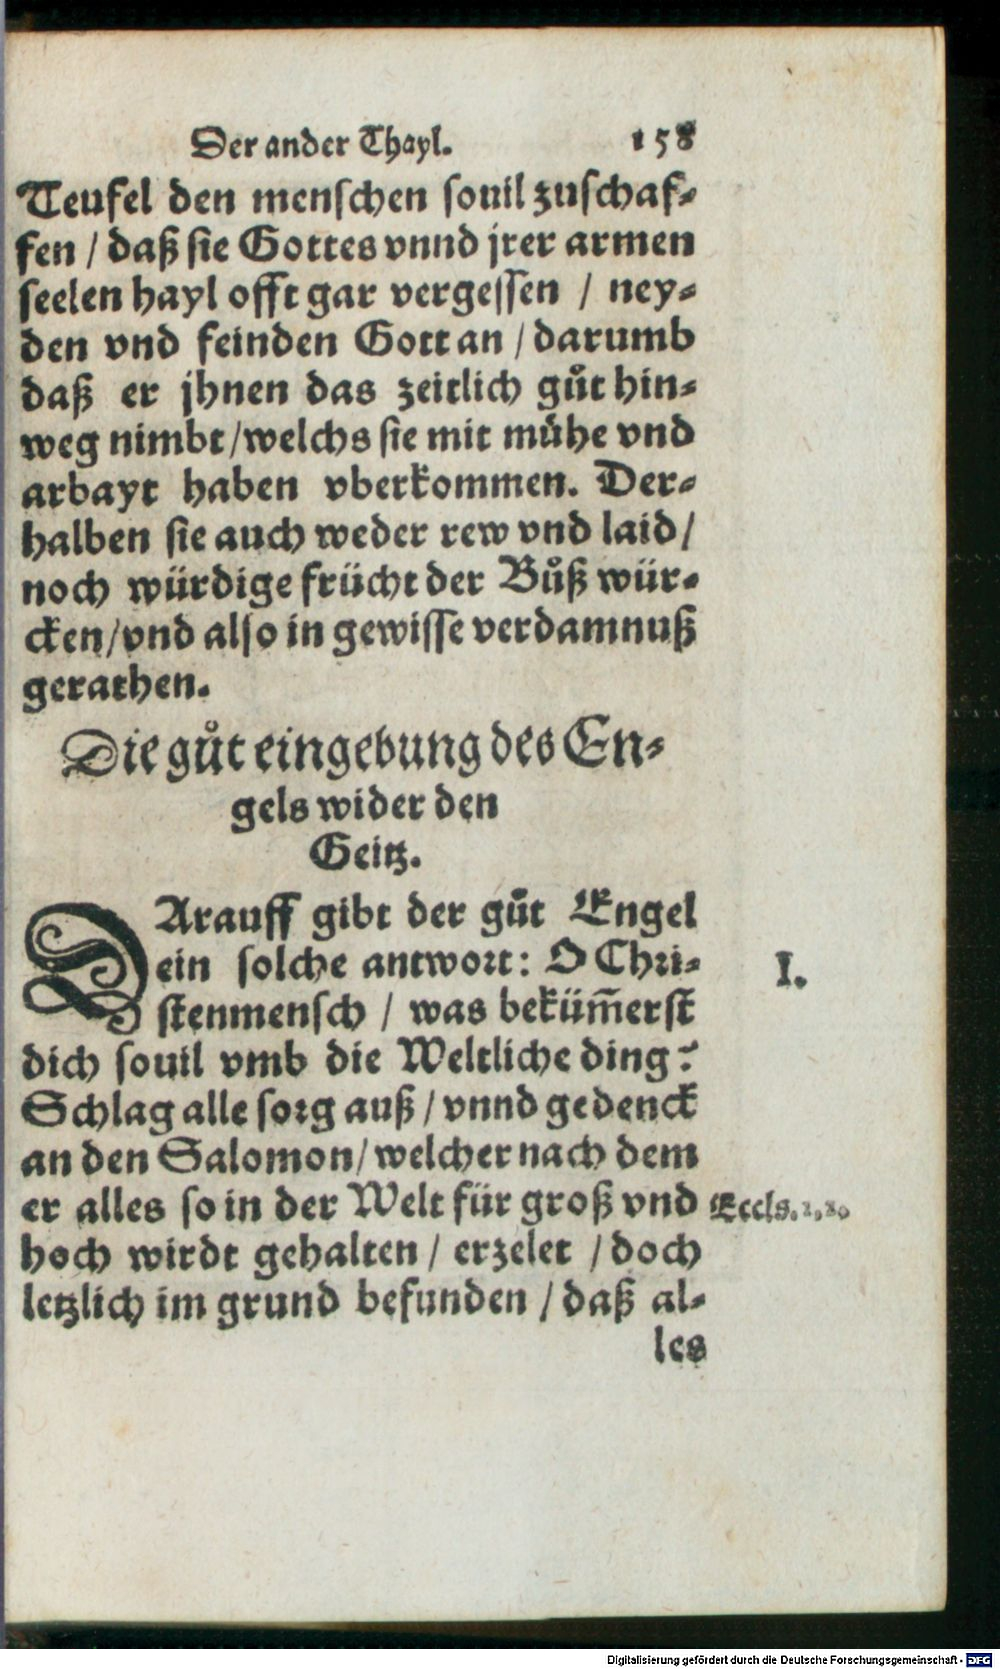 Der ander Thayl. 158
Teufel den menschen souil zuschaf-
fen / daß sie Gottes vnnd jrer armen
seelen hayl offt gar vergessen / ney-
den vnd feinden Gott an / darumb
daß er jhnen das zeitlich gůt hin-
weg nimbt / welchs sie mit mühe vnd
arbayt haben vberkommen. Der-
halben sie auch weder rew vnd laid /
noch würdige frücht der Bůß wür-
cken / vnd also in gewisse verdamnuß
gerathen.
Die gůt eingebung des En-
gels wider den
Geitz.
DArauff gibt der gůt Engel
ein solche antwort: O Chri-
stenmensch / was bekům̄erst
dich souil vmb die Weltliche ding?
Schlag alle sorg auß / vnnd gedenck
an den Salomon / welcher nach dem
er alles so in der Welt für groß vnd
hoch wirdt gehalten / erzelet / doch
letzlich im grund befunden / daß al-
les
I.
Eccls. 1. 2.
Digitalisierung gefördert durch die Deutsche Forschungsgemeinschaft - DFG